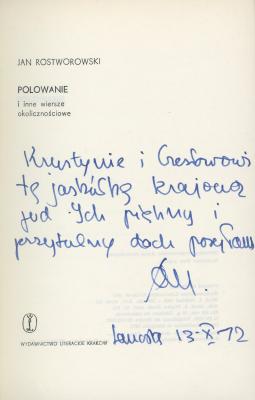 JAN ROSTWOROWSKI
POLOWANIE
i inne wiersze
okolicznościowe
Krystynie i Czesławowi
tę jaskółkę krajową
pod Ich piękny i
przytulny dach posyłam
13-X-72
WYDAWNICTWO LITERACKIE KRAKÓW